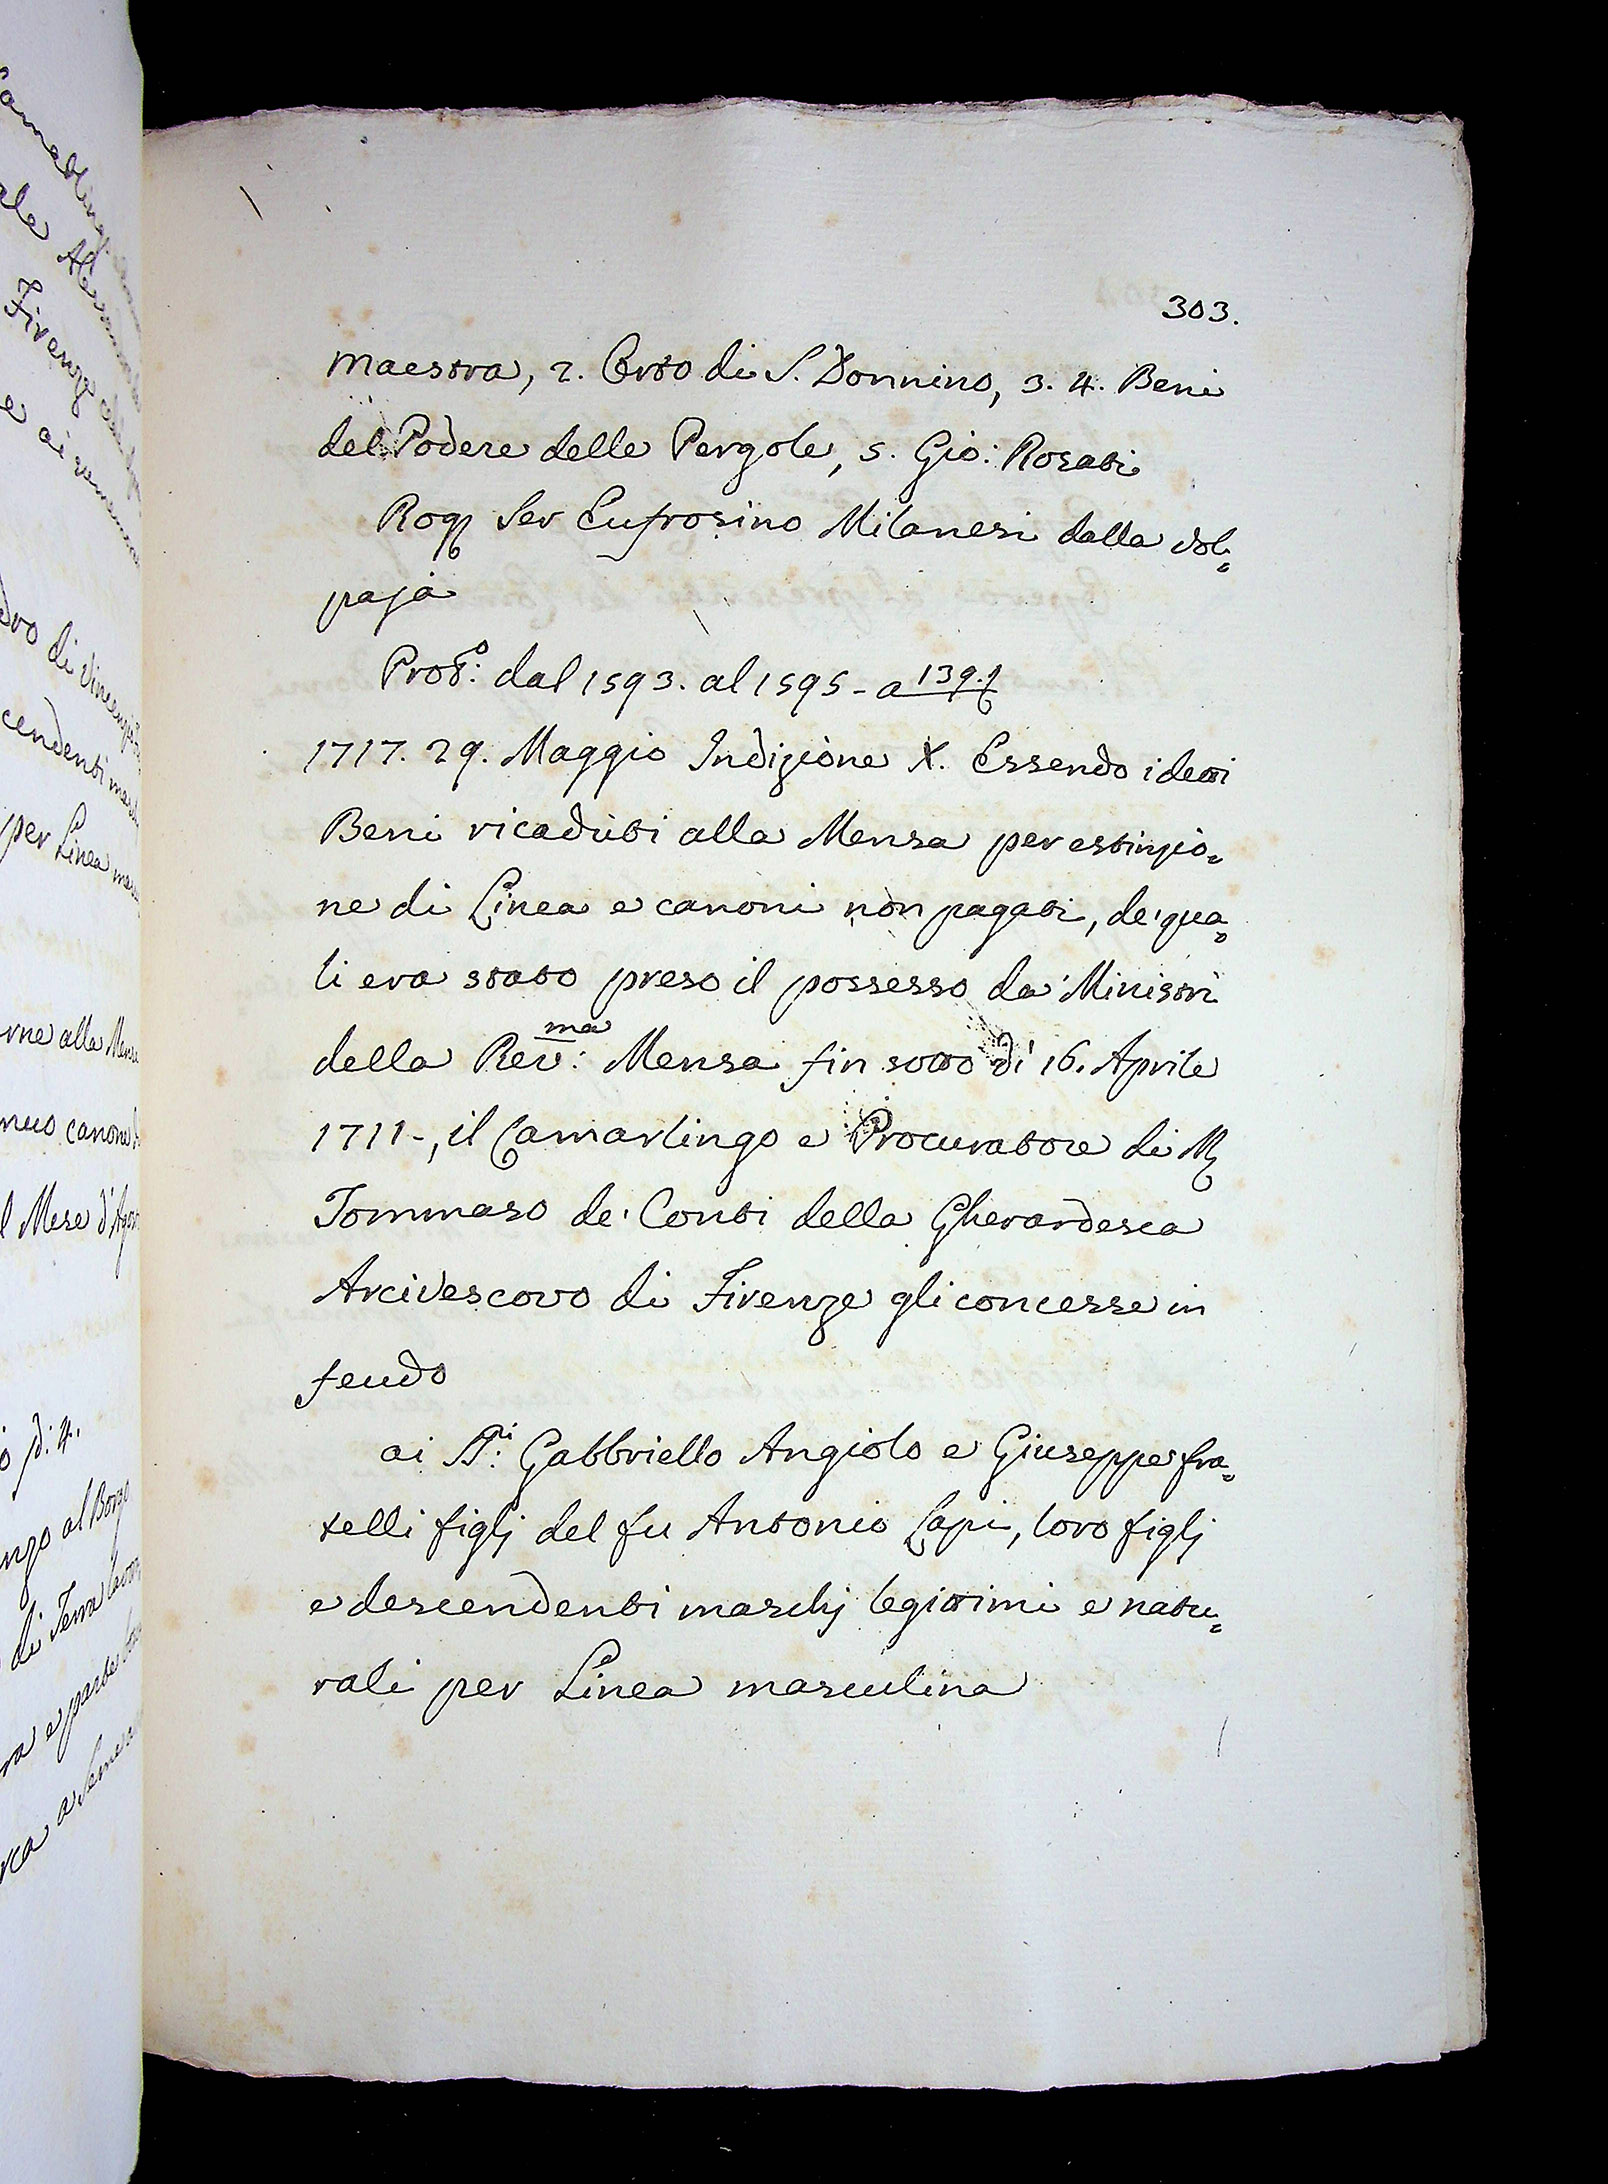 303.
maestra, 2. Orto di S. Donnino, 3. 4. Beni
del Podere delle Pergole, 5. Gio: Rosati
Rog Ser Eufrosino Milanesi dalla Vol=
paja
Prot.o: dal 1593. al 1595 - a 139.
1717. 29. Maggio Indizione X. Essendo i detti
Beni ricaduti alla Mensa per estinzio=
ne di Linea e canoni non pagati, de' qua=
li era stato preso il possesso da' Ministri
della Rev:ma Mensa fin sotto dì 16. Aprile
1711-, il Camarlingo e Procuratore di M
Tommaso de' Conti della Gherardesca
Arcivescovo di Firenze gli concesse in
feudo
ai SS:ri Gabbriello Angiolo e Giuseppe fra=
telli figlj del fu Antonio Lapi, loro figlj
e descendenti maschj legittimi e natu=
rali per Linea masculina